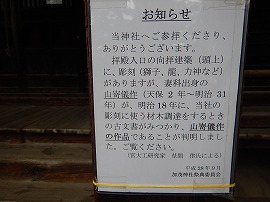 お知らせ
当神社へご参拝くださり、
ありがとうございます。
拝殿入口の向拝建築（頭上）
に、彫刻（獅子、龍、力神など）
がありますが、妻科出身の
山嵜儀作（天保2年～明治31
年）が、明治18年に、当社の
彫刻に使う材木調達をするとき
の古文書がみつかり、山嵜儀作
の作品であることが判明しまし
た。ご覧ください。
（宮大工研究家　草間　律氏による）
平成28年9月
加茂神社祭典委員会